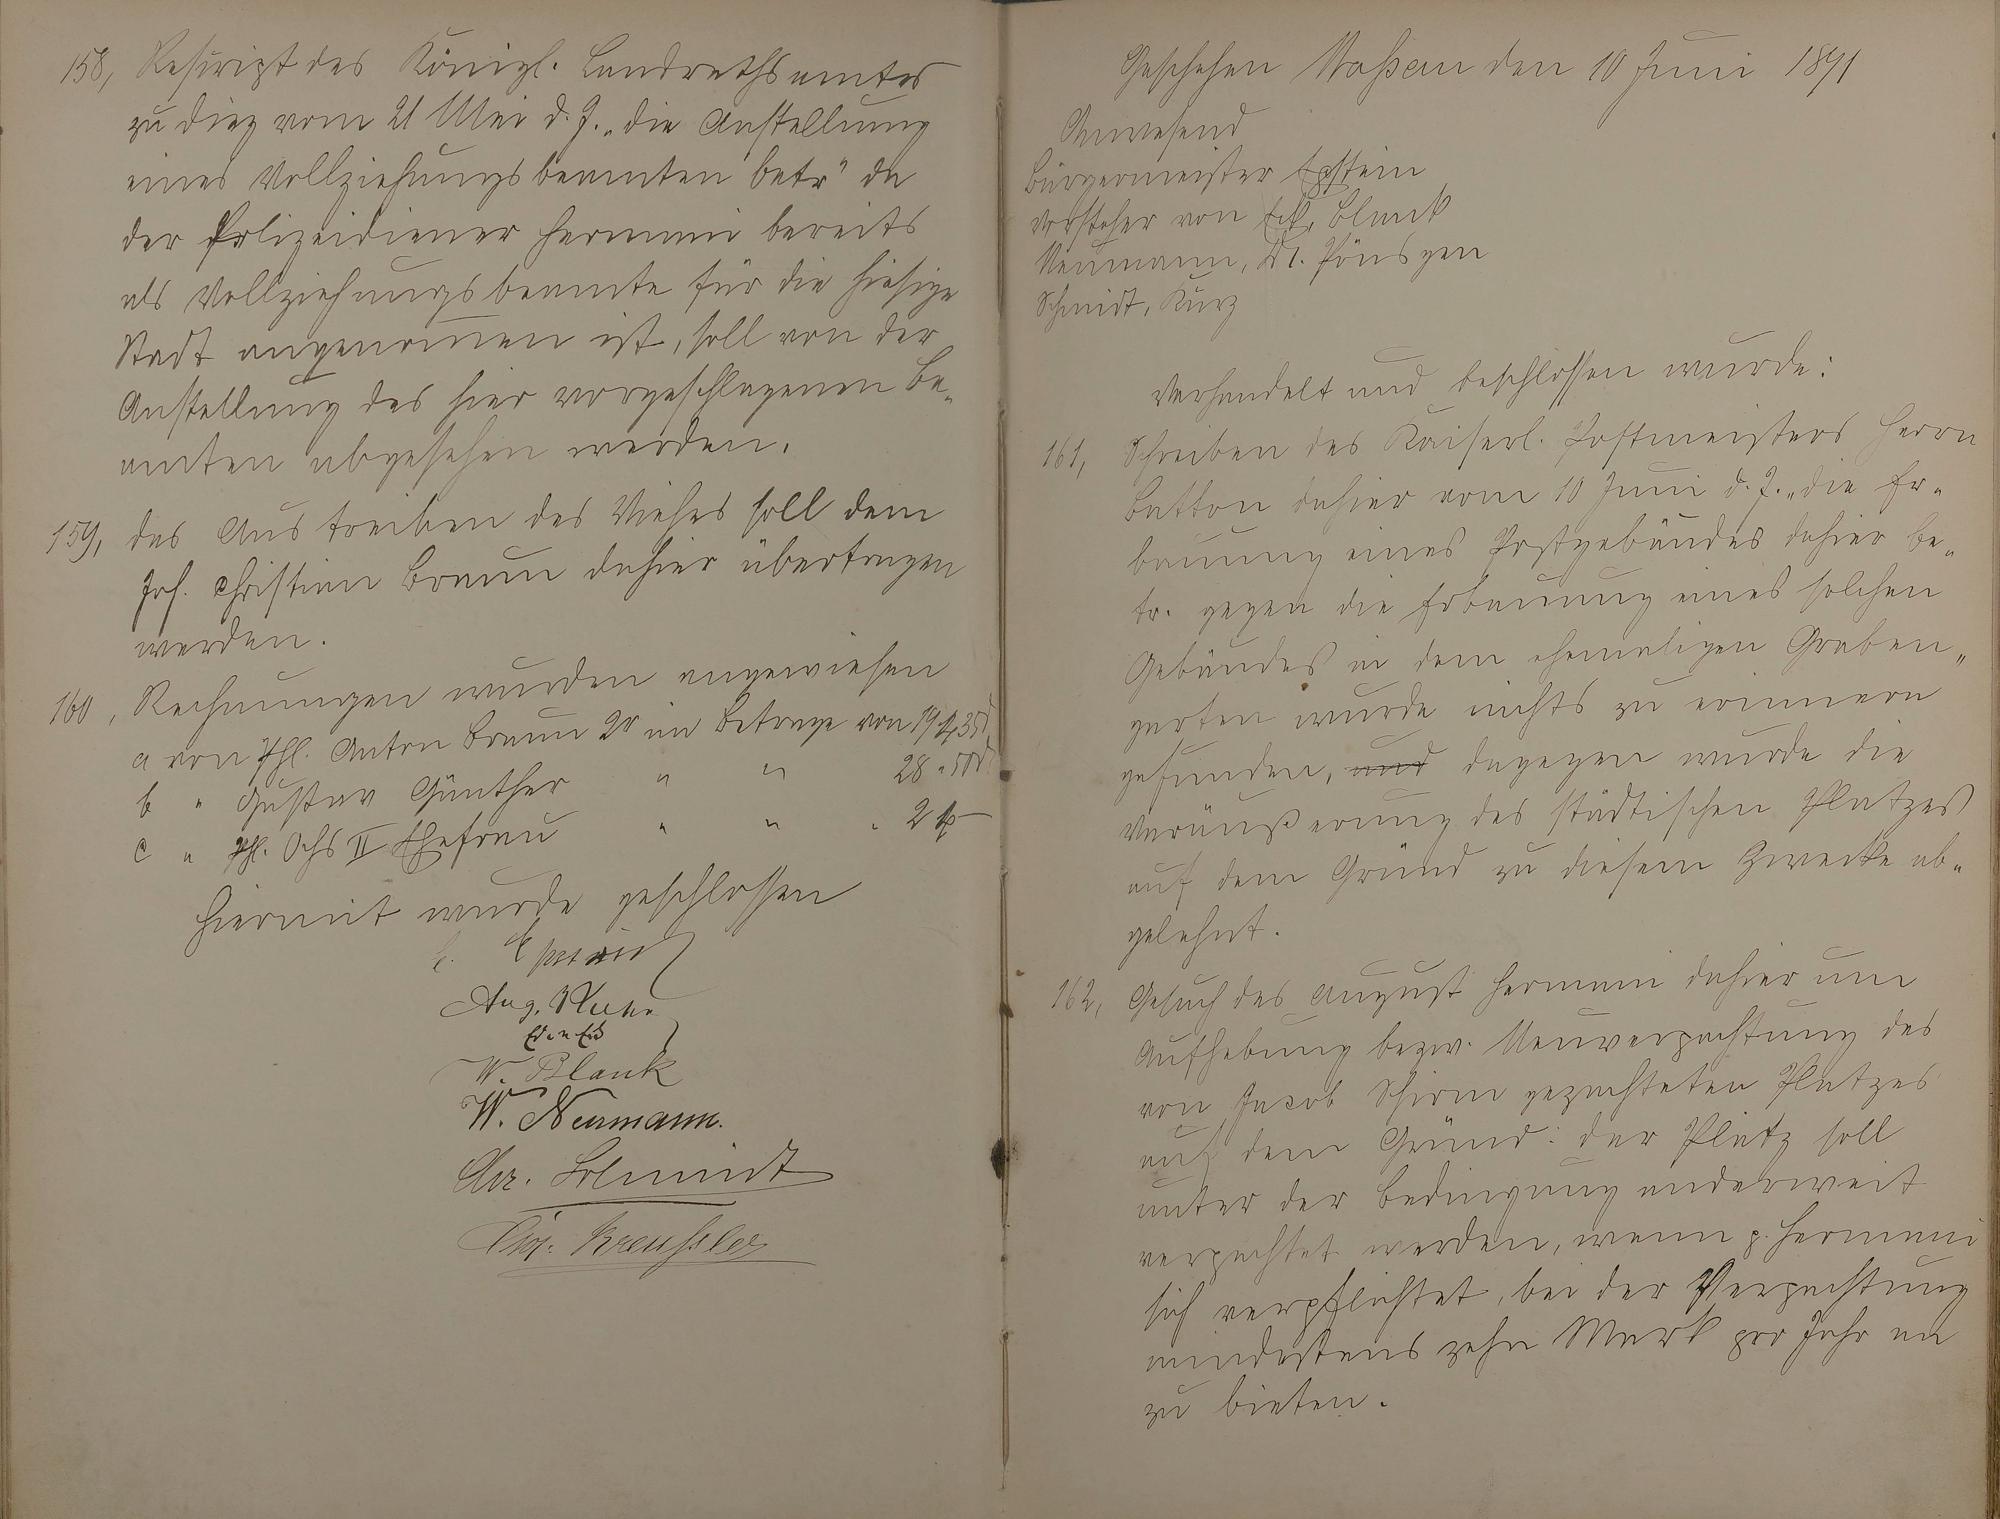 158, Rescript des Königl. Landrathsamtes
zu Diez vom 21 Mai d. J. „die Anstellung
eines Vollziehungsbeamten betr" da
der Polizeidiener Hermani bereits
als Vollziehungsbeamte für die hiesige
Stadt angenommen ist, soll von der
Anstellung des hier vorgeschlagenen Be„
amten abgesehen werden.
159, das Austreiben des Viehes soll dem
Joh. Christian Braun dahier übertragen
werden.
160, Rechnungen wurden angewiesen
a von Phl. Anton Braun 2r im Betrage von 19 M 35 d
b " Gustav Günther " " 28 " 50 d
c " Phl. Ochs II Ehefrau " " " 2 M —
Hiermit wurde geschlossen
E. Epstein
Aug.
W. Blank
W. Neumann.
Chr. Schmidt
Chr. Kreussler
Geschehen Naßau den 10 Juni 1891
Anwesend
Bürgermeister Epstein
Vorsteher von Eck, Blank
Neumann, Dr. Pönsgen
Schmidt, Kurz
Verhandelt und beschlossen wurde:
161, Schreiben des Kaiserl. Postmeisters Herrn
Batton dahier vom 10 Juni d. J. „die Er„
bauung eines Postgebäudes dahier be„
tr. gegen die Erbauung eines solchen
Gebäudes in dem ehemaligen Graben„
garten wurde nichts zu erinnern
gefunden, und dagegen wurde die
Veräußerung des städtischen Platzes
auf dem Gründ zu diesem Zwecke ab„
gelehnt.
162, Gesuch des August Hermani dahier um
Aufhebung bezw. Neuverpachtung des
von Jacob Schirm gepachteten Platzes
auf dem Gründ: der Platz soll
unter der Bedingung anderweit
verpachtet werden, wenn p. Hermani
sich verpflichtet, bei der Verpachtung
mindestens zehn Mark pro Jahr an
zu bieten.